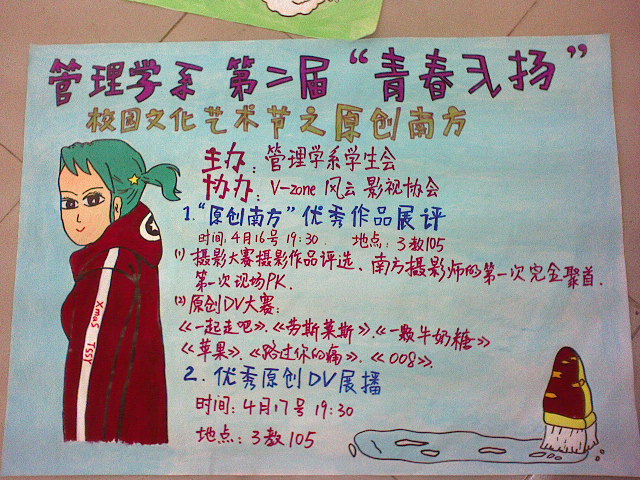 管理学系 第二届“青春飞扬”
校园文化艺术节之原创南方
主办：管理学系学生会
协办：V-zone 风云影视协会
1.“原创南方”优秀作品展评
时间：4月16号 19:30 地点：3教105
(1) 摄影大赛摄影作品评选、南方摄影师的第一次完全聚首.
第一次现场PK.
(2) 原创DV大赛：
《一起走吧》.《劳斯莱斯》.《一颗牛奶糖》
《苹果》.《路过你的痛》.《008》.
2. 优秀原创DV展播
时间：4月17号 19:30
地点：3教105
Xmas TSSY